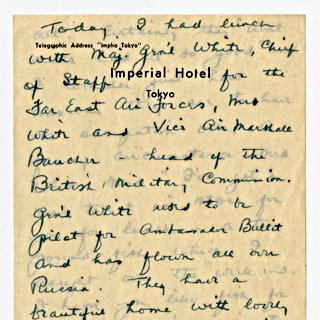 Today I had lunch
Telegraphic Address "Impho Tokyo"
with Maj. Gn'e White, Chief
Imperial Hotel
of Staff for the
Tokyo
Far East Air Forces, Mrs
White and Vice Air Marshall
Baucher - head of the
British Military Commission.
Gn'e White used to be
pilot for Ambassador Bullit
and has flown all over
Russia. They have a
beautiful home with lovely